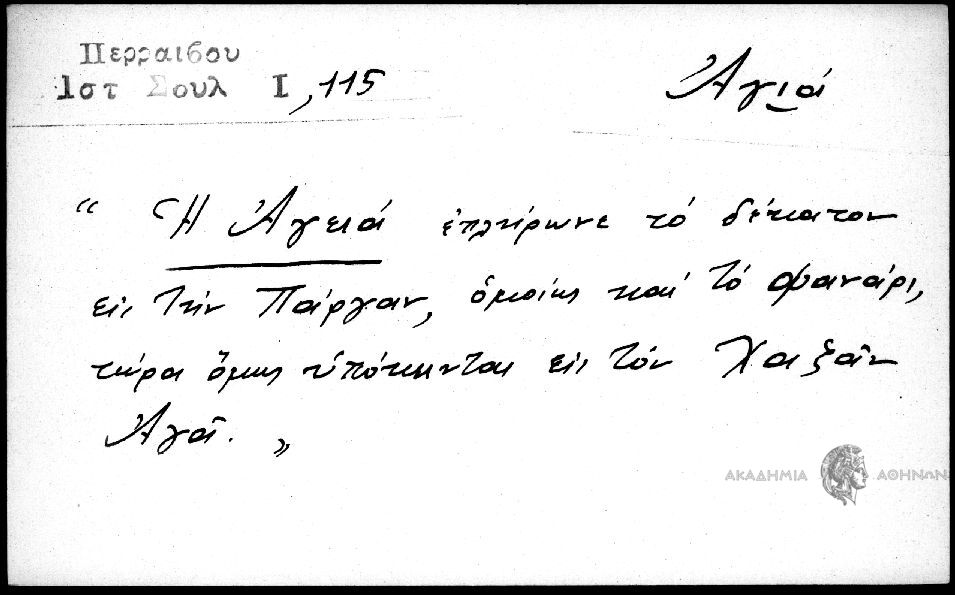 Περραιβου
Ιστ Σουλ Ι, 115
Ἁγιά
“ Ἡ Ἁγειά ἐπλήρωνε τό δέκατον
εἰς τήν Πάργαν, ὁμοίως καί τό Φανάρι,
τώρα ὅμως ὑπόκεινται εἰς τόν Χαξᾶν
Ἀγᾶ. „
ΑΚΑΔΗΜΙΑ ΑΘΗΝΩΝ